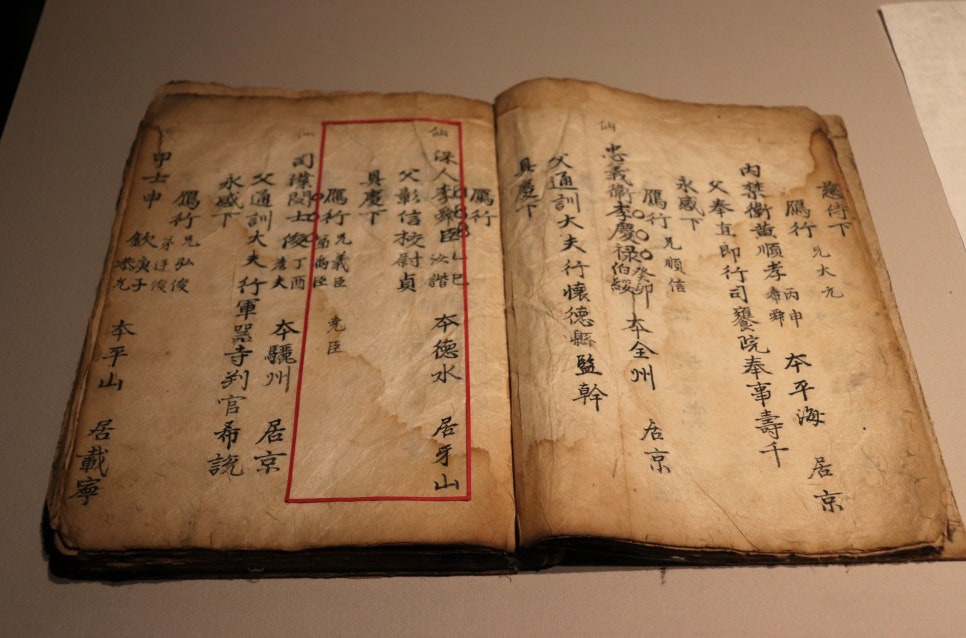 慈侍下
鴈行 兄大允
內禁衛黃順孝 丙申 本平海 居京
父奉直郎行司饔院奉事壽千
永感下
鴈行 兄順信
仙 忠義衛李慶祿 癸卯 伯綏 本全州 居京
父通訓大夫行懷德縣監幹
具慶下
鴈行
仙 保人李舜臣 乙巳 汝諧 本德水 居牙山
父彰信校尉貞
具慶下
鴈行 兄義臣 堯臣 弟禹臣
仙 司僕閔士俊 丁酉 彦夫 本驪州 居京
父通訓大夫行軍器寺判官希說
永感下
鴈行 兄弘俊 弟廷俊
甲士申欽 庚子 本平山 居載寧